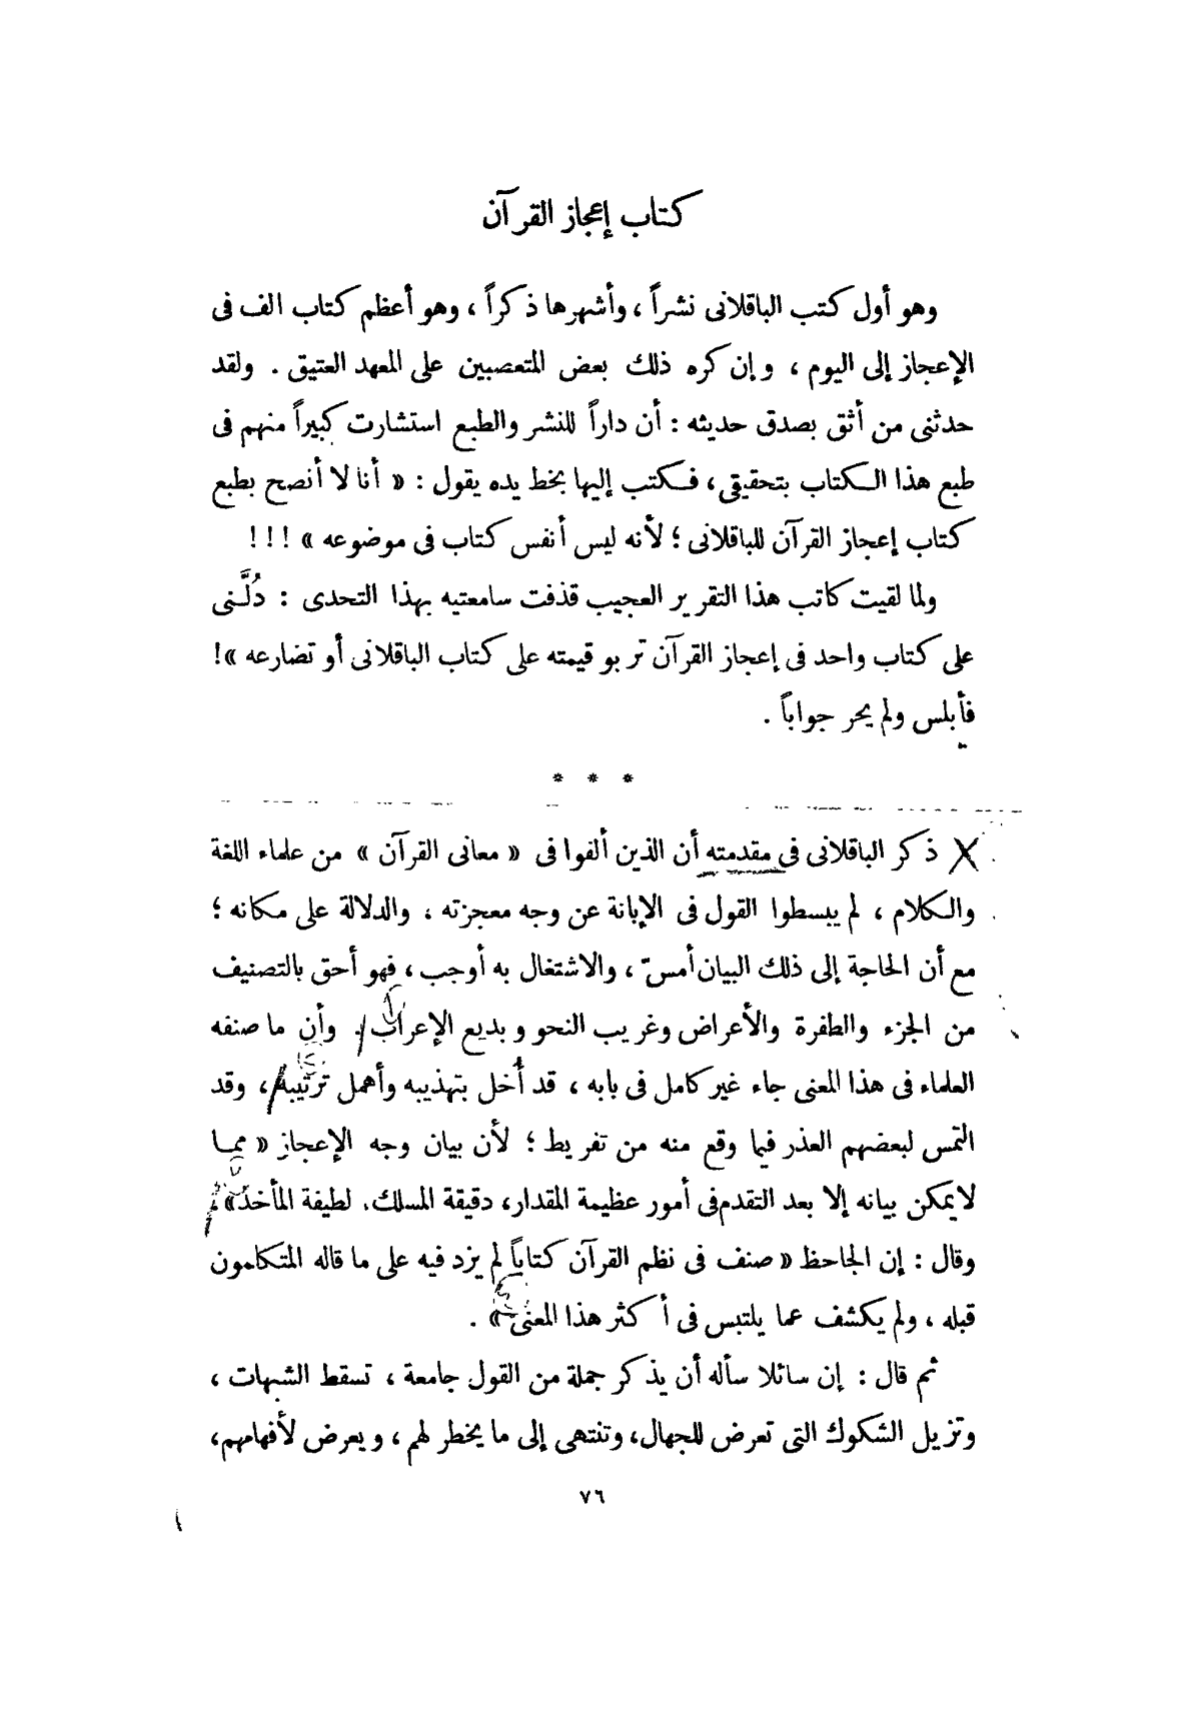 كتاب إعجاز القرآن
وهو أول كتب الباقلانى نشراً ، وأشهرها ذكراً ، وهو أعظم كتاب الف فى
الإعجاز إلى اليوم ، وإن كره ذلك بعض المتعصبين على المعهد العتيق . ولقد
حدثنى من أثق بصدق حديثه : أن داراً للنشر والطبع استشارت كبيراً منهم فى
طبع هذا الكتاب بتحقيقى ، فكتب إليها بخط يده يقول : « أنا لا أنصح بطبع
كتاب إعجاز القرآن للباقلانى ؛ لأنه ليس أنفس كتاب فى موضوعه » ! ! !
ولما لقيت كاتب هذا التقرير العجيب قذفت سامعتيه بهذا التحدى : دُلَّنى
على كتاب واحد فى إعجاز القرآن تربو قيمته على كتاب الباقلانى أو تضارعه » !
فأبلس ولم يحر جواباً .
* * *
ذكر الباقلانى فى مقدمته أن الذين ألفوا فى « معانى القرآن » من علماء اللغة
والكلام ، لم يبسطوا القول فى الإبانة عن وجه معجزته ، والدلالة على مكانه ؛
مع أن الحاجة إلى ذلك البيان أمسّ ، والاشتغال به أوجب ، فهو أحق بالتصنيف
من الجزء والطفرة والأعراض وغريب النحو وبديع الإعراب . وأن ما صنفه
العلماء فى هذا المعنى جاء غير كامل فى بابه ، قد أُخل بتهذيبه وأهمل ترتيبه ، وقد
التمس لبعضهم العذر فيما وقع منه من تفريط ؛ لأن بيان وجه الإعجاز « مما
لايمكن بيانه إلا بعد التقدم فى أمور عظيمة المقدار، دقيقة المسلك، لطيفة المأخذ » ،
وقال : إن الجاحظ « صنف فى نظم القرآن كتاباً لم يزد فيه على ما قاله المتكلمون
قبله ، ولم يكشف عما يلتبس فى أكثر هذا المعنى » .
ثم قال : إن سائلا سأله أن يذكر جملة من القول جامعة ، تسقط الشبهات ،
وتزيل الشكوك التى تعرض للجهال، وتنتهى إلى ما يخطر لهم ، ويعرض لأفهامهم،
٧٦